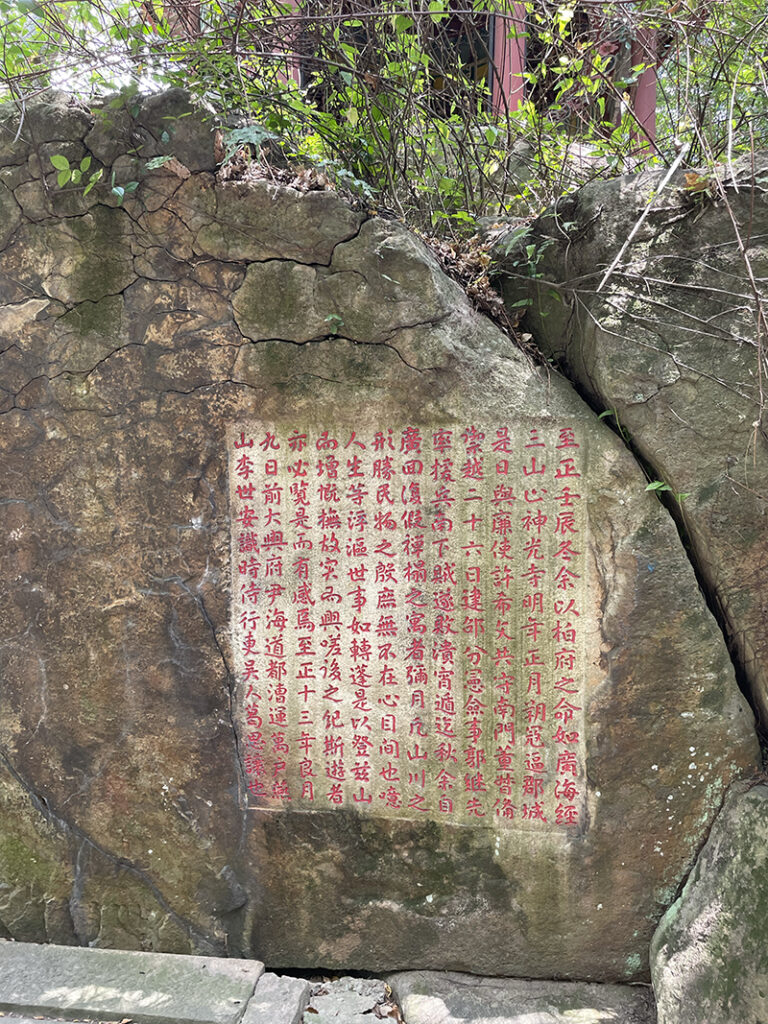 至正壬辰冬余以栢府之命如廣海經
三山止神光寺明年正月朔寇逼郡城
是日與廉使許希文共守南門董督備
禦越二十六日建邵分憲僉事郭継先
率援兵南下賊遂敗潰宵遁迄秋余自
廣回復假禪榻之寓者彌月凡山川之
形勝民物之殷庶無不在心目間也噫
人生等浮漚世事如轉蓬是以登兹山
而增慨撫故實而興嗟後之紀斯遊者
亦必覽是而有感焉至正十三年良月
九日前大興府尹海道都漕運萬戶燕
山李世安識時侍行東吳人葛思讓也